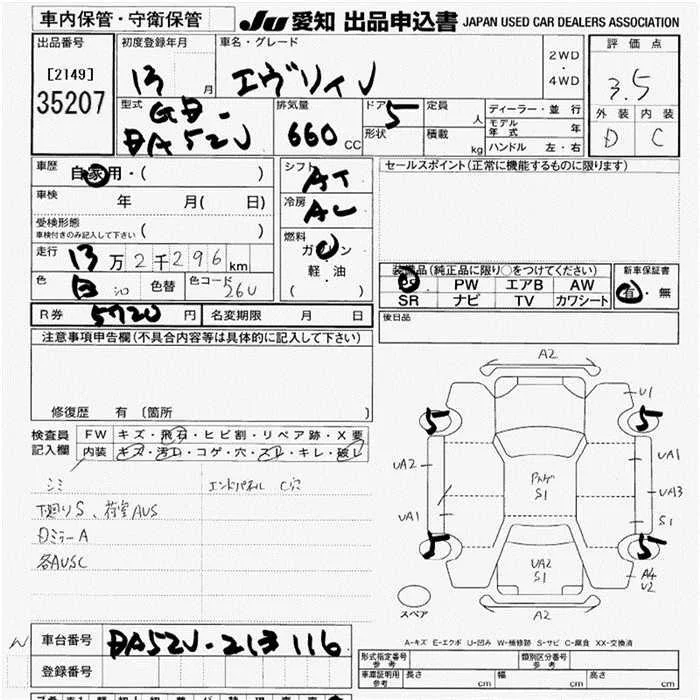 車内保管・守衛保管
JU 愛知 出品申込書 JAPAN USED CAR DEALERS ASSOCIATION
出品番号 初度登録年月 車名・グレード 評価点
[2149] 13 月 エヴリィJ 2WD・4WD 3.5
35207
型式 GD- 排気量 ドア 5 定員 人 ディーラー・並行 外装 内装
DA52V 660 CC 形状 積載 kg モデル年式 年 D C
ハンドル 左・右
車歴 自家用・( ) シフト AT セールスポイント(正常に機能するものに限ります)
車検 年 月( 日) 冷房 AC
受検形態 車検付きのみ記入して下さい ( )
燃料 ガソリン
走行 13万2千296km 軽・油
装備品(純正品に限り○をつけてください) 新車保証書
色 白 色替 色コード 26U ( ) PS PW エアB AW 有・無
SR ナビ TV カワシート
R券 5720円 名変期限 月 日 後日品
注意事項申告欄(不具合内容等は具体的に記入して下さい)
修復歴 有 〔箇所 〕
検査員記入欄 FW キズ・飛石・ヒビ割・リペア跡・X要
内装 キズ・汚レ・コゲ・穴・スレ・キレ・破レ
シミ エンドパネル C穴
下廻りS、荷室AUS
Dミラー A
各AUSC
A2
U1
5 5
UA2 UA1
S1 UA3
UA1 S1
5 5
UA2
S1 A4
U2
A2
スペア
A-キズ E-エクボ U-凹み W-補修跡 S-サビ C-腐食 XX-交換済
車台番号 DA52V-213116
登録番号
形式指定番号 参考 類別区分番号 参考
車庫証明用 参考 長さ cm 幅 cm 高さ cm